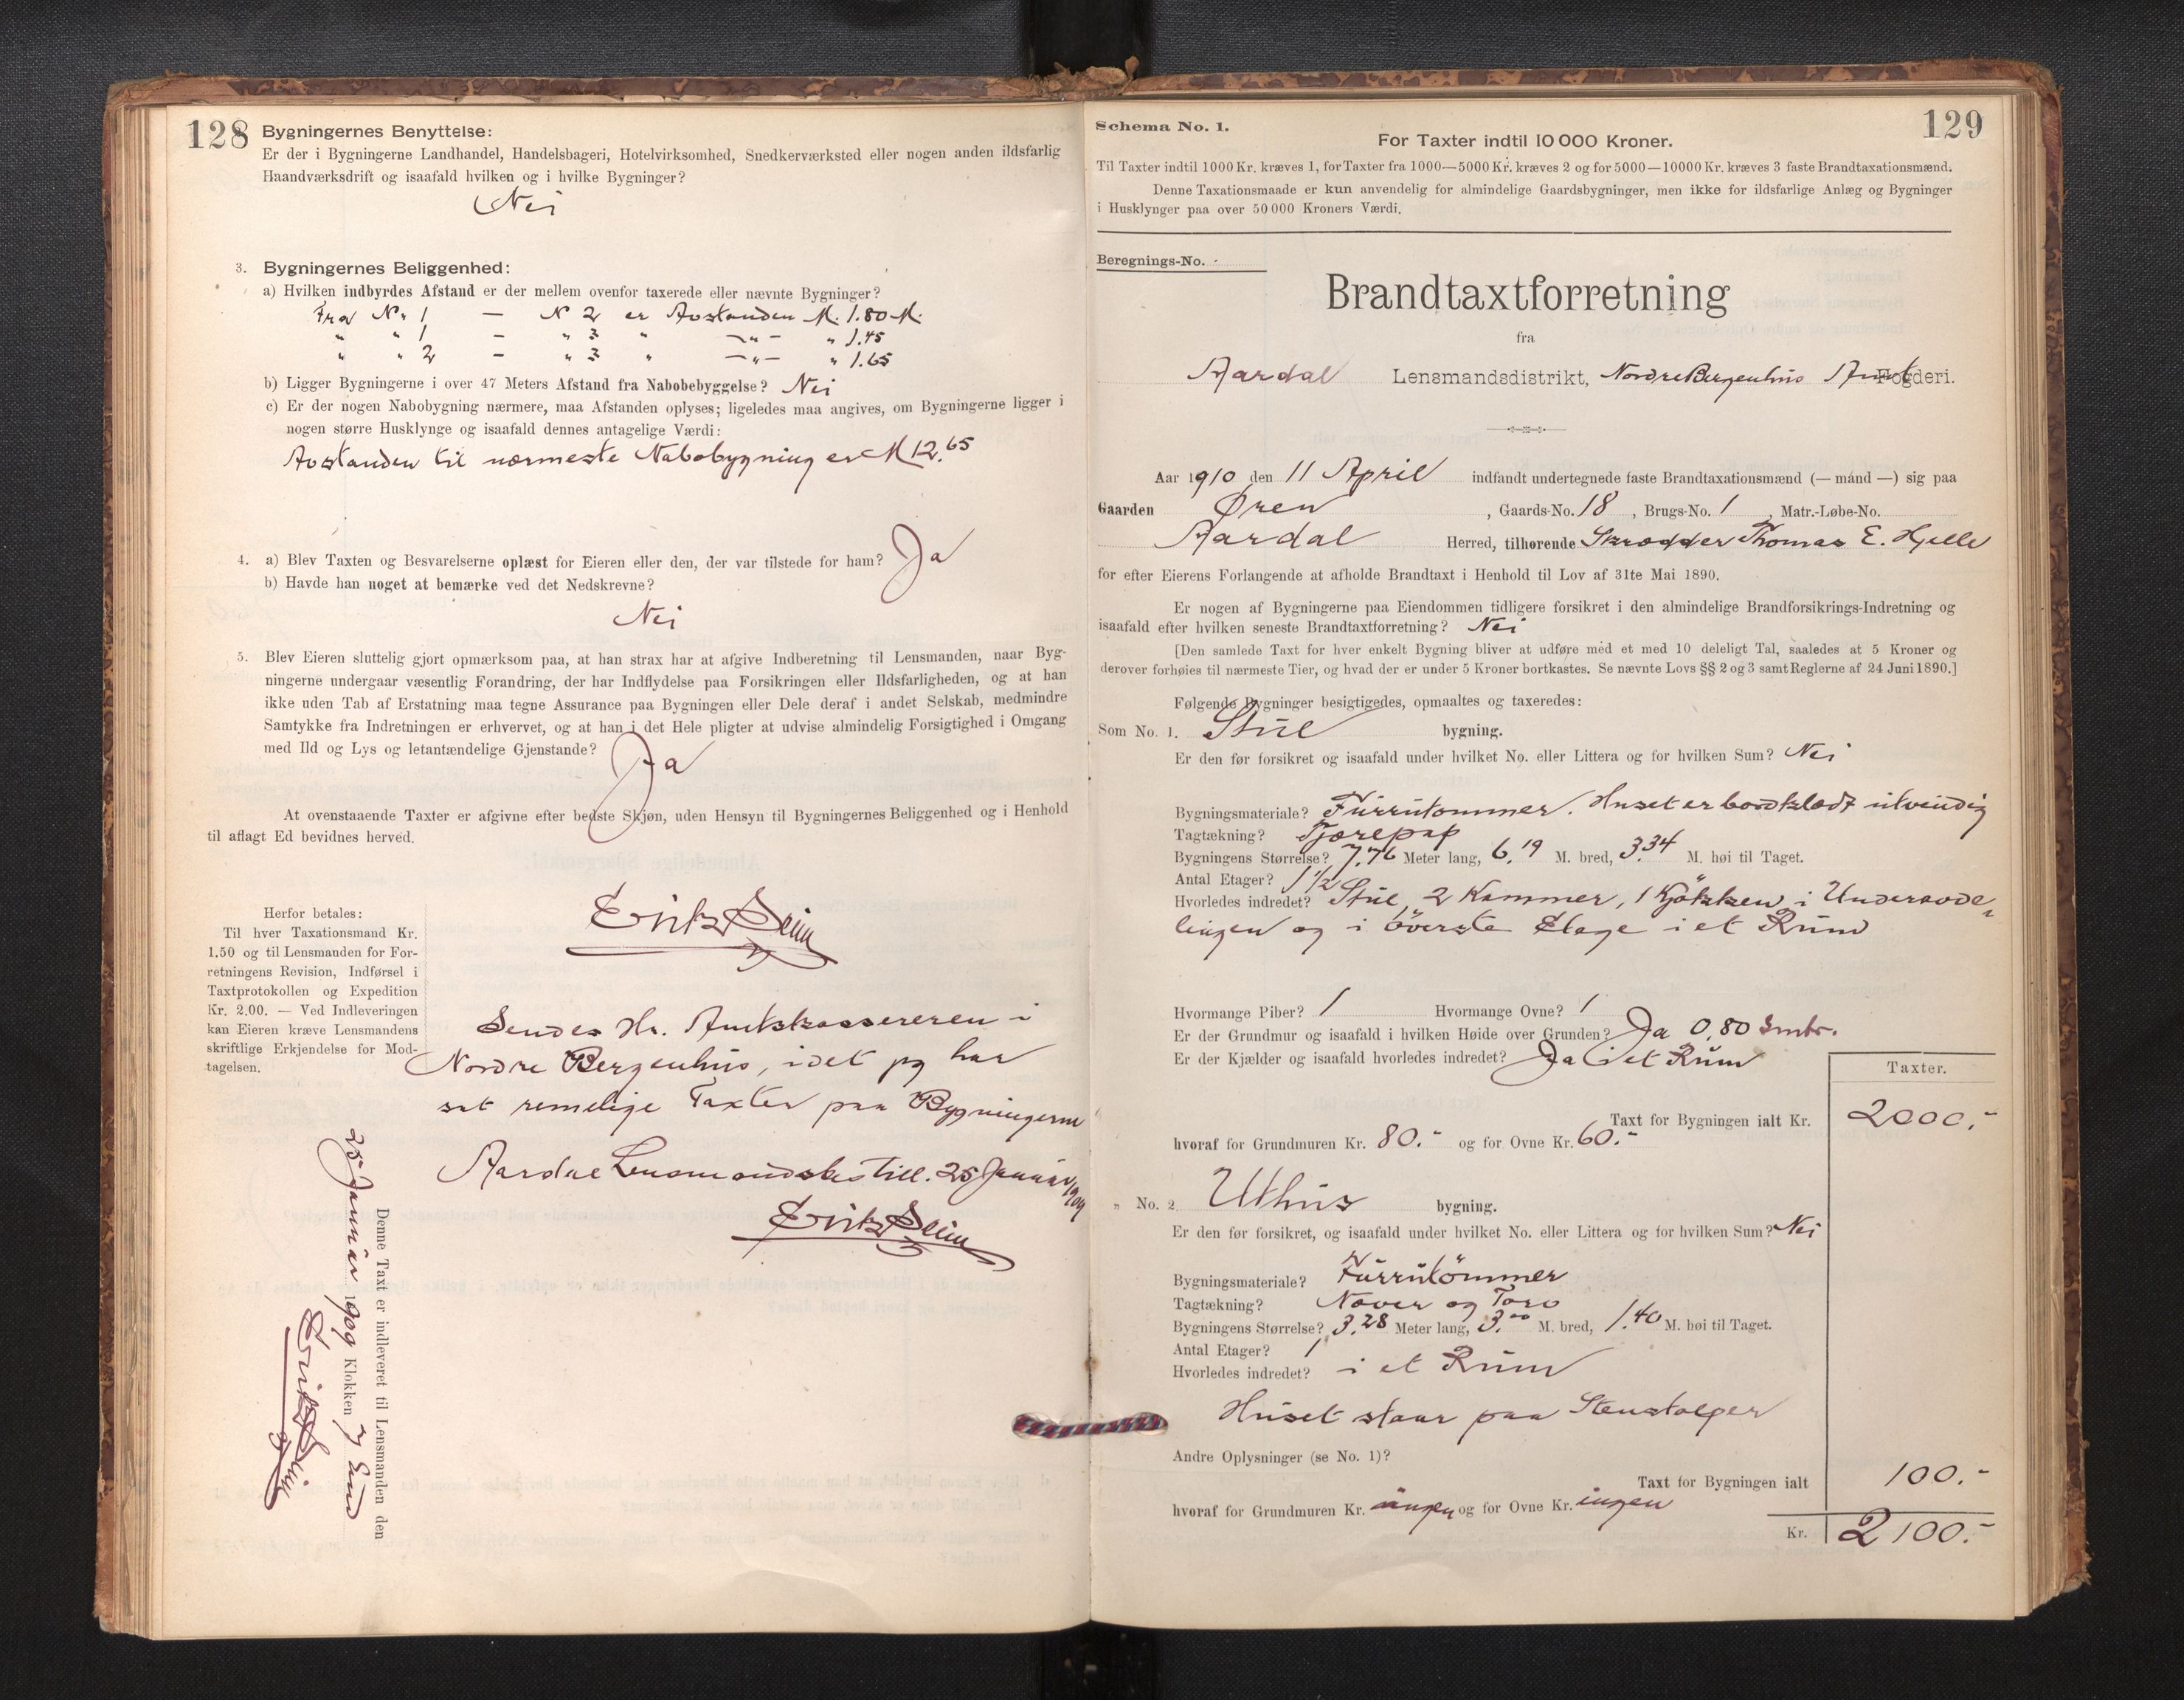 128
Bygningernes Benyttelse:
Er der i Bygningerne Landhandel, Handelsbageri, Hotelvirksomhed, Snedkerværksted eller nogen anden ildsfarlig
Haandværksdrift og isaafald hvilken og i hvilke Bygninger?
Nei
3. Bygningernes Beliggenhed:
a) Hvilken indbyrdes Afstand er der mellem ovenfor taxerede eller nævnte Bygninger?
Fra No 1 — N 2 er Avstanden M. 1.80 M.
" " 1 — " 3 " —"— " 1.45
" " 2 — " 3 " —"— " 1.65
b) Ligger Bygningerne i over 47 Meters Afstand fra Nabobebyggelse? Nei
c) Er der nogen Nabobygning nærmere, maa Afstanden oplyses; ligeledes maa angives, om Bygningerne ligger i
nogen større Husklynge og isaafald dennes antagelige Værdi:
Avstanden til nærmeste Nabobygning er M 12.65
4. a) Blev Taxten og Besvarelserne oplæst for Eieren eller den, der var tilstede for ham? Ja
b) Havde han noget at bemærke ved det Nedskrevne?
Nei
5. Blev Eieren sluttelig gjort opmærksom paa, at han strax har at afgive Indberetning til Lensmanden, naar Byg-
ningerne undergaar væsentlig Forandring, der har Indflydelse paa Forsikringen eller Ildsfarligheden, og at han
ikke uden Tab af Erstatning maa tegne Assurance paa Bygningen eller Dele deraf i andet Selskab, medmindre
Samtykke fra Indretningen er erhvervet, og at han i det Hele pligter at udvise almindelig Forsigtighed i Omgang
med Ild og Lys og letantændelige Gjenstande?
Ja
At ovenstaaende Taxter er afgivne efter bedste Skjøn, uden Hensyn til Bygningernes Beliggenhed og i Henhold
til aflagt Ed bevidnes herved.
Erik Seim
Herfor betales:
Til hver Taxationsmand Kr.
1.50 og til Lensmanden for For-
retningens Revision, Indførsel i
Taxtprotokollen og Expedition
Kr. 2.00. — Ved Indleveringen
kan Eieren kræve Lensmandens
skriftlige Erkjendelse for Mod-
tagelsen.
Sendes Hr. Amtskassereren i
Nordre Bergenhus, idet jeg har
sat rimelige Taxter paa Bygningerne
Aardal Lensmandsbestill. 25 Januar 1909
Erik Seim
Denne Taxt er indleveret til Lensmanden den
25 Januar 1909 Klokken
Erik Seim
129
Schema No. 1.
For Taxter indtil 10 000 Kroner.
Til Taxter indtil 1000 Kr. kræves 1, for Taxter fra 1000—5000 Kr. kræves 2 og for 5000—10000 Kr. kræves 3 faste Brandtaxationsmænd.
Denne Taxationsmaade er kun anvendelig for almindelige Gaardsbygninger, men ikke for ildsfarlige Anlæg og Bygninger
i Husklynger paa over 50 000 Kroners Værdi.
Beregnings-No.
Brandtaxtforretning
fra
Aardal Lensmandsdistrikt, Nordre Bergenhus Amt Fogderi.
Aar 1910 den 11 April indfandt undertegnede faste Brandtaxationsmænd (— mand —) sig paa
Gaarden Øren, Gaards-No. 18, Brugs-No. 1, Matr.-Løbe-No.
Aardal Herred, tilhørende Skrædder Thomas E. Hjelle
for efter Eierens Forlangende at afholde Brandtaxt i Henhold til Lov af 31te Mai 1890.
Er nogen af Bygningerne paa Eiendommen tidligere forsikret i den almindelige Brandforsikrings-Indretning og
isaafald efter hvilken seneste Brandtaxtforretning? Nei
[Den samlede Taxt for hver enkelt Bygning bliver at udføre med et med 10 deleligt Tal, saaledes at 5 Kroner og
derover forhøies til nærmeste Tier, og hvad der er under 5 Kroner bortkastes. Se nævnte Lovs §§ 2 og 3 samt Reglerne af 24 Juni 1890.]
Følgende Bygninger besigtigedes, opmaaltes og taxeredes:
Som No. 1. Stue bygning.
Er den før forsikret og isaafald under hvilket No. eller Littera og for hvilken Sum? Nei
Bygningsmateriale? Furrutømmer. Huset er bordklædt utvendig
Tagtækning? Tjærepap
Bygningens Størrelse? 7.76 Meter lang, 6.19 M. bred, 3.34 M. høi til Taget.
Antal Etager? 1 1/2
Hvorledes indredet? Stue, 2 Kammer, 1 Kjøkken i Underavde-
lingen og i øverste Etage i et Rum
Hvormange Piber? 1 Hvormange Ovne? 1
Er der Grundmur og isaafald i hvilken Høide over Grunden? Ja 0,80 Smtr.
Er der Kjælder og isaafald hvorledes indredet? Ja i et Rum
Taxter.
Taxt for Bygningen ialt Kr. 2000.-
hvoraf for Grundmuren Kr. 80.- og for Ovne Kr. 60.-
" No. 2. Uthus bygning.
Er den før forsikret, og isaafald under hvilket No. eller Littera og for hvilken Sum? Nei
Bygningsmateriale? Furrutømmer
Tagtækning? Næver og Torv
Bygningens Størrelse? 3.28 Meter lang, 3.00 M. bred, 1.40 M. høi til Taget.
Antal Etager? 1
Hvorledes indredet? i et Rum
Huset staar paa Stenstolper
Andre Oplysninger (se No. 1)?
Taxt for Bygningen ialt 100.-
hvoraf for Grundmuren Kr. ingen og for Ovne Kr. ingen
Kr. 2100.-